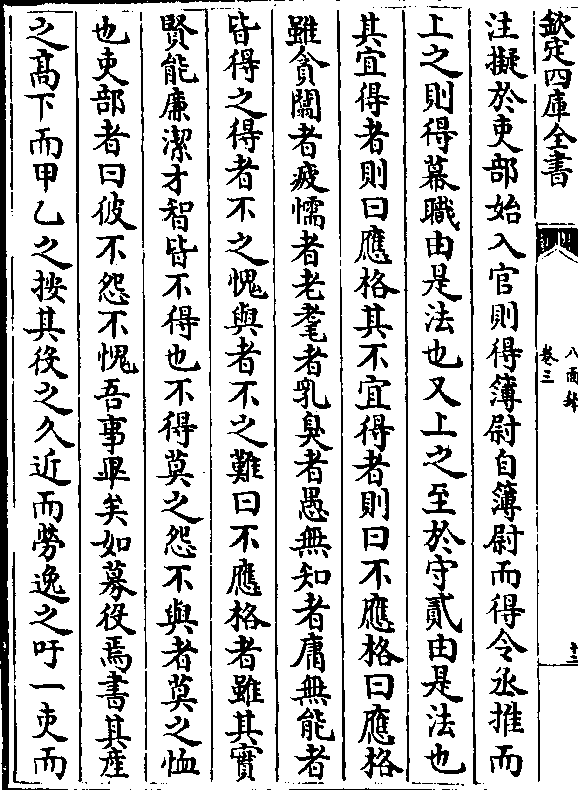 欽定四庫全書
八面鋒
卷三
十三
注擬於吏部始入官則得簿尉自簿尉而得令丞推而
上之則得幕職由是法也又上之至於守貳由是法也
其宜得者則曰應格其不宜得者則曰不應格曰應格
雖貪闒者疲懦者老耄者乳臭者愚無知者庸無能者
皆得之得者不之愧與者不之難曰不應格者雖其實
賢能廉潔才智皆不得也不得莫之怨不與者莫之恤
也吏部者曰彼不怨不愧吾事畢矣如募役焉書其產
之髙下而甲乙之按其役之久近而勞逸之吁一吏而